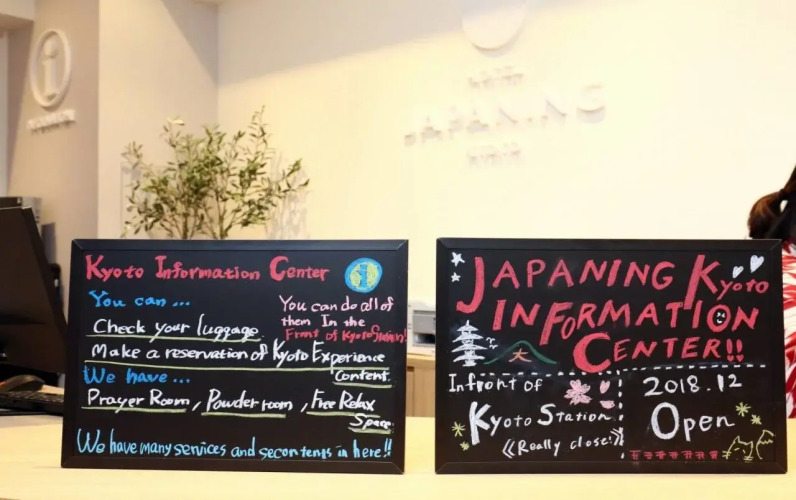 JAPANING
Kyoto Information Center
You can ...
Check your luggage.
Make a reservation of Kyoto Experience
Content.
You can do all of
them In the
Front of Kyoto Station!
We have ...
Prayer Room, Powder room, Free Relax
Space.
We have many services and secontengs in here!!
JAPANING Kyoto
INFORMATION
CENTER!!
Infront of
Kyoto Station.
《Really close!》
2018.12
Open